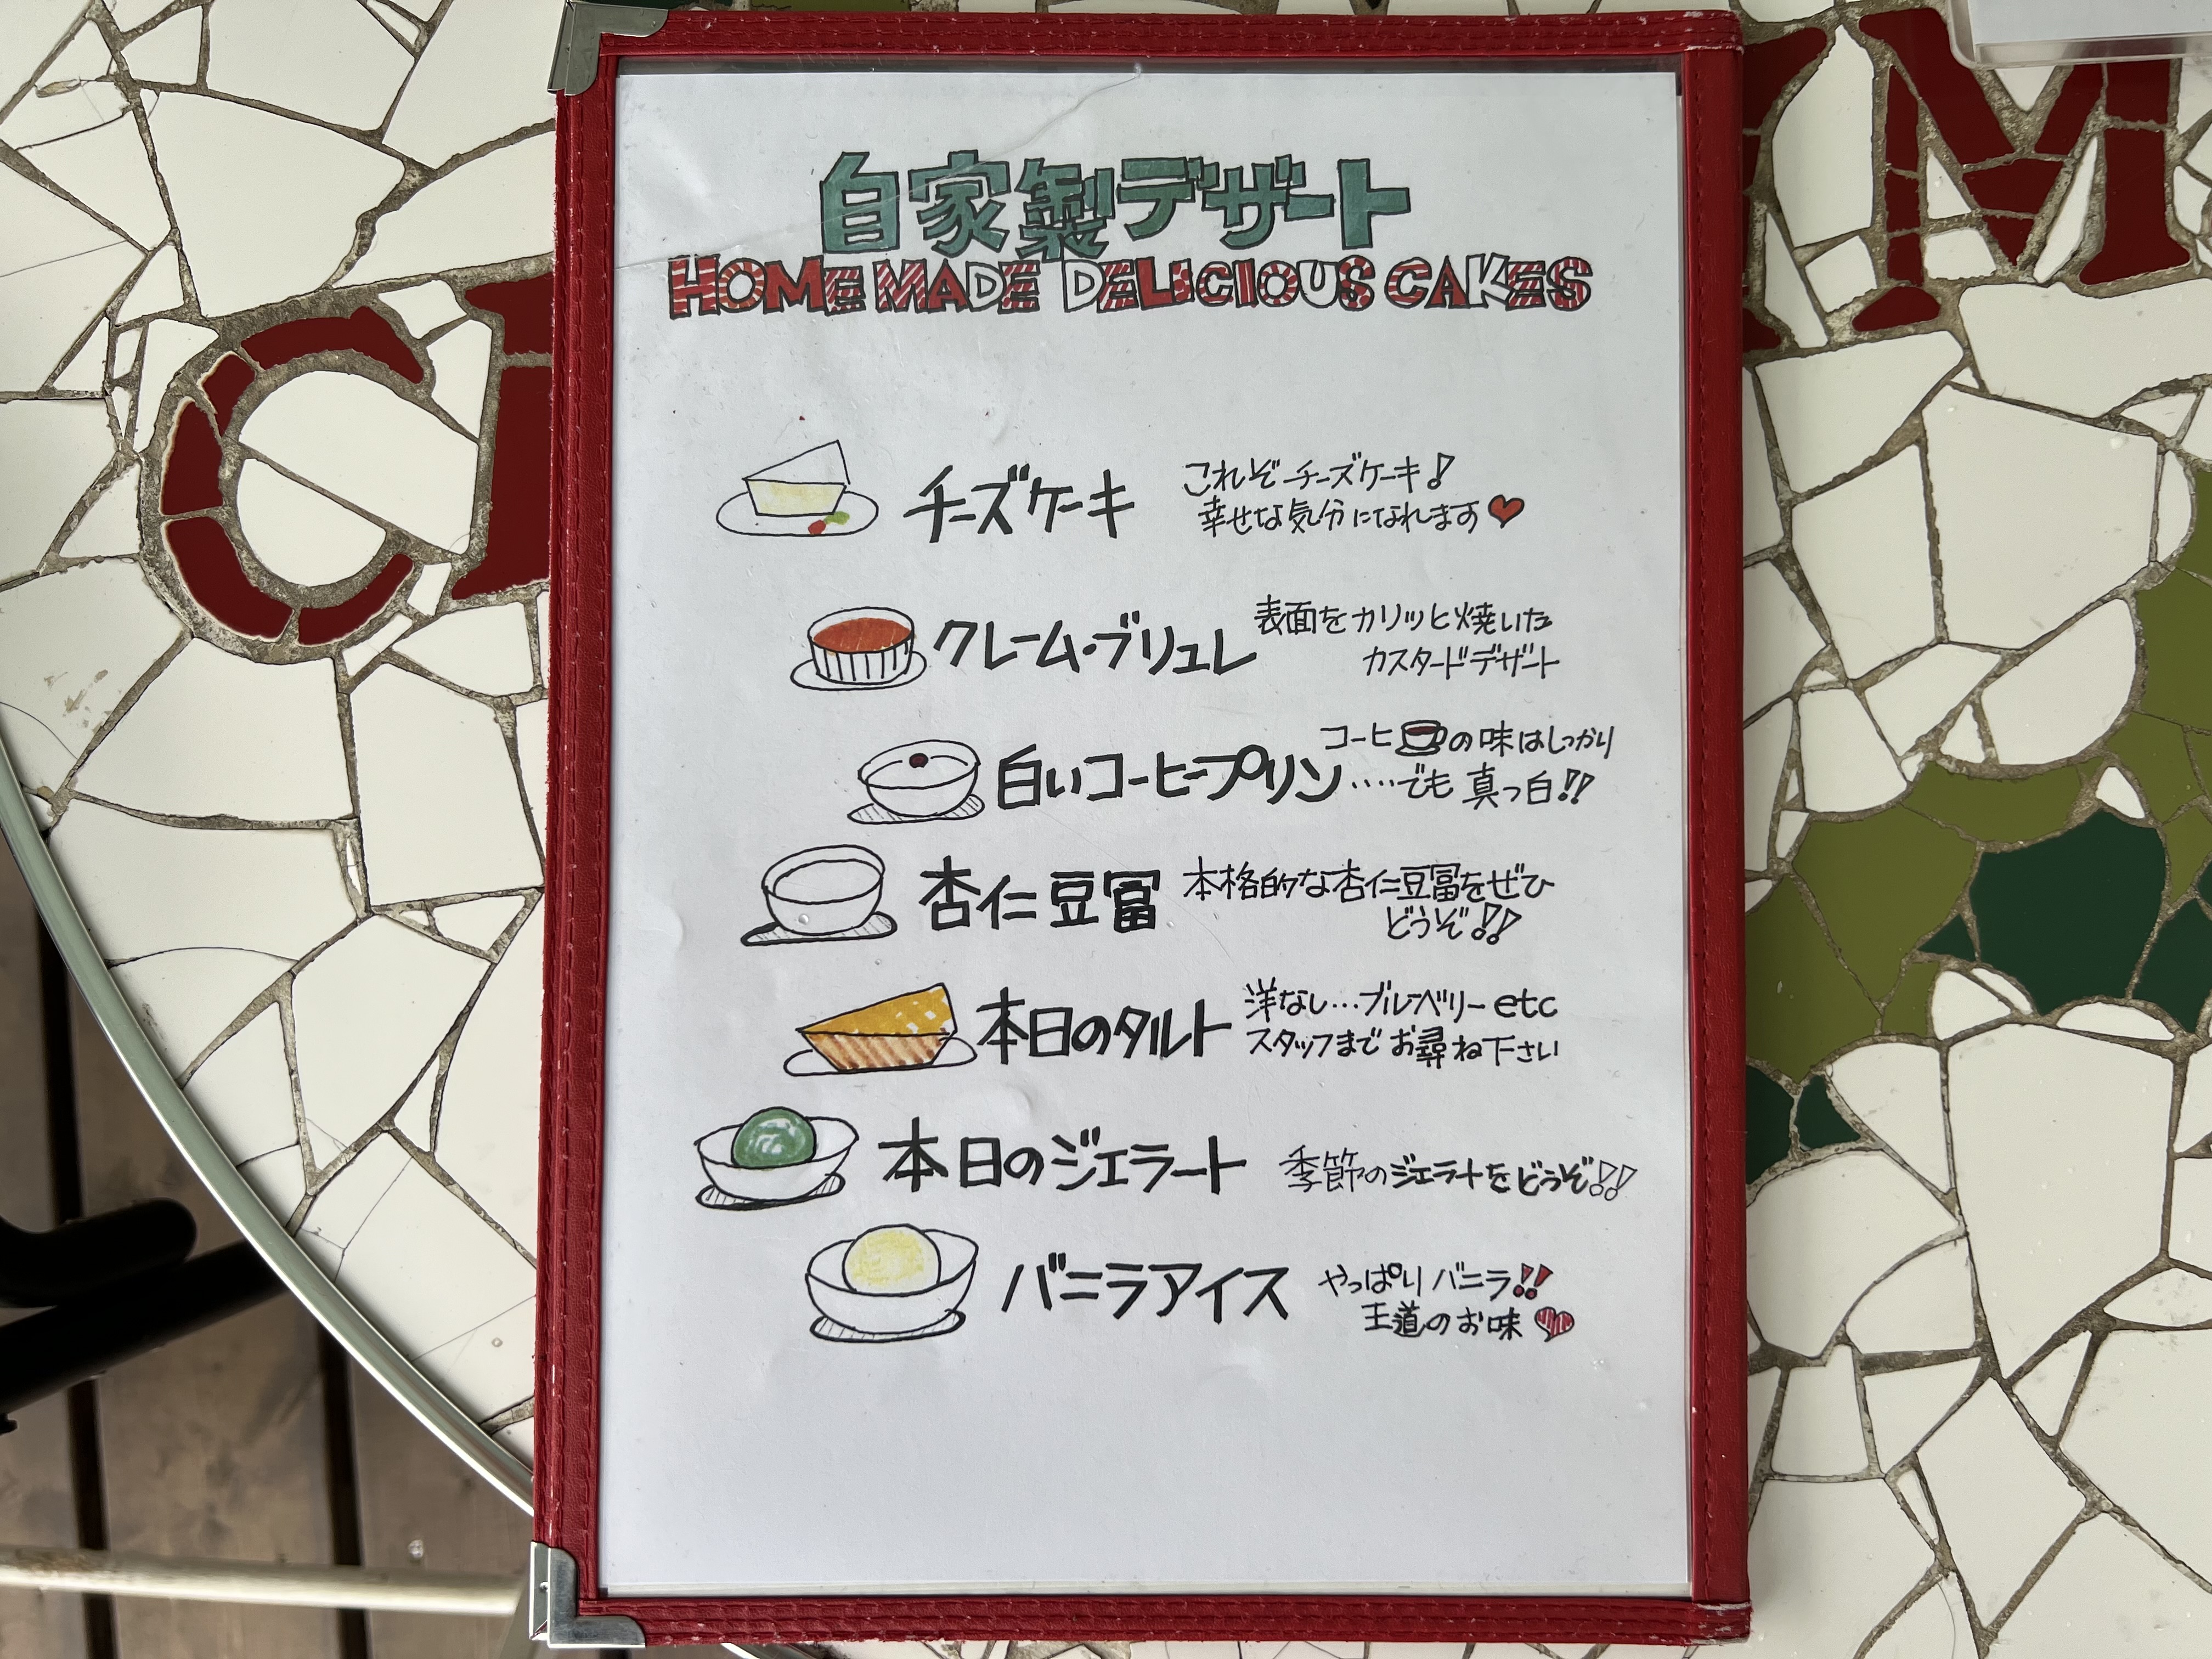 自家製デザート
HOME MADE DELICIOUS CAKES
チーズケーキ
これぞチーズケーキ!
幸せな気分になれます
クレーム・ブリュレ
表面をカリッと焼いた
カスタードデザート
白いコーヒープリン
コーヒーの味はしっかり
····でも 真っ白!!
杏仁豆冨
本格的な杏仁豆冨をぜひ
どうぞ!!
本日のタルト
洋なし…ブルーベリー etc
スタッフまで お尋ね下さい
本日のジェラート
季節のジェラートをどうぞ!!
バニラアイス
やっぱり バニラ!!
王道のお味
C
M